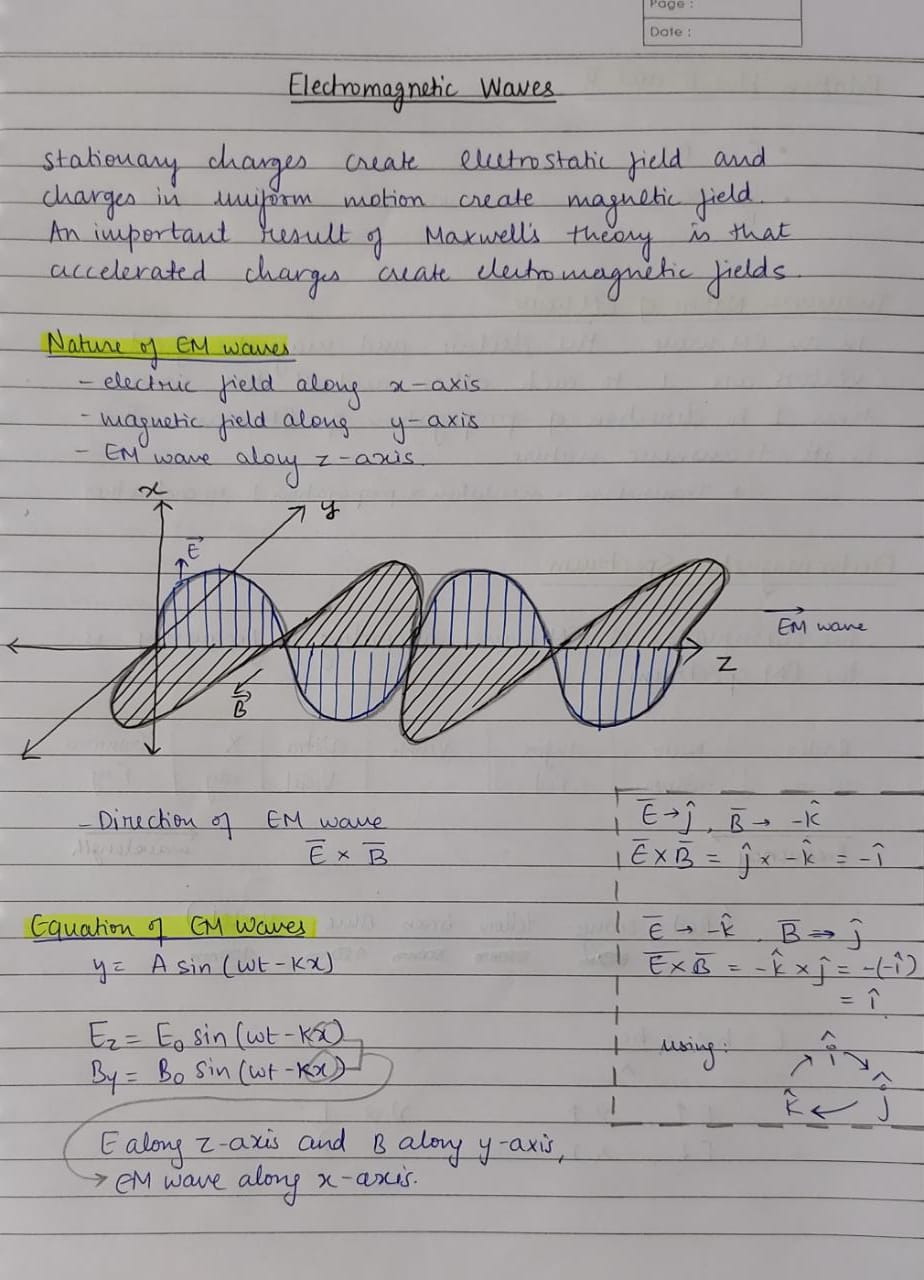 Page :
Date :
Electromagnetic Waves
stationary charges create electrostatic field and
charges in uniform motion create magnetic field.
An important result of Maxwell's theory is that
accelerated charges create electromagnetic fields.
Nature of EM waves
- electric field along x-axis
- magnetic field along y-axis
- EM wave along z-axis.
x
y
E⃗
B⃗
EM wave
z
- Direction of EM wave
E̅ × B̅
E̅ → ĵ, B̅ → -k̂
E̅ × B̅ = ĵ × -k̂ = -î
E̅ → -k̂, B̅ ⇒ ĵ
E̅ × B̅ = -k̂ × ĵ = -(-î)
= î
using:
î
k̂ ← ĵ
Equation of EM waves
y = A sin (wt - kx)
Ez = E₀ sin (wt - kx)
By = B₀ sin (wt - kx)
E along z-axis and B along y-axis,
→ EM wave along x-axis.